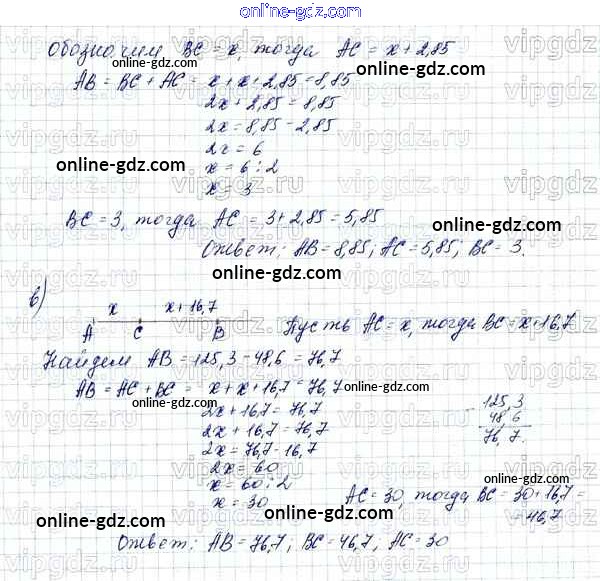 online-gdz.com
Обозначим BC = x, тогда AC = x + 2,85
AB = BC + AC = x + x + 2,85 = 8,85
2x + 2,85 = 8,85
2x = 8,85 - 2,85
2x = 6
x = 6 : 2
x = 3
BC = 3, тогда AC = 3 + 2,85 = 5,85
Ответ: AB = 8,85; AC = 5,85; BC = 3.
в)
x x + 16,7
A C B
Пусть AC = x, тогда BC = x + 16,7
Найдем AB = 125,3 - 48,6 = 76,7
AB = AC + BC = x + x + 16,7 = 76,7
2x + 16,7 = 76,7
2x + 16,7 = 76,7
2x = 76,7 - 16,7
2x = 60
x = 60 : 2
x = 30
- 125,3
48,6
76,7.
AC = 30, тогда BC = 30 + 16,7 =
= 46,7
Ответ: AB = 76,7, BC = 46,7, AC = 30
online-gdz.com
online-gdz.com
online-gdz.com
online-gdz.com
online-gdz.com
online-gdz.com
online-gdz.com
online-gdz.com
online-gdz.com
online-gdz.com
online-gdz.com
online-gdz.com
online-gdz.com
vipgdz.ru
vipgdz.ru
vipgdz.ru